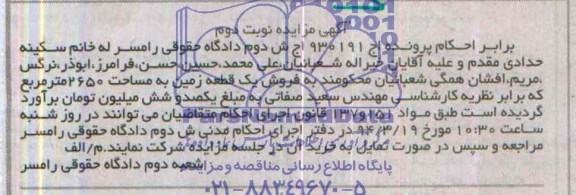 آگهی مزایده نوبت دوم
برابر احکام پرونده اج ۹۳۰۱۹۱ اج ش دوم دادگاه حقوقی رامسر له خانم سکینه
حدادی مقدم و علیه آقایان خیراله شعبانیان، علی محمد، حسین، حسن، فرامرز، ابوذر، نرگس
، مریم، افشان همگی شعبانیان محکومند به فروش یک قطعه زمین به مساحت ۲۶۵۰ مترمربع
که برابر نظریه کارشناسی مهندس سعید صفاتی به مبلغ یکصدو شش میلیون تومان برآورد
گردیده است طبق مواد ۵۱ و ۱۳۷ قانون اجرای احکام متقاضیان می توانند در روز شنبه
ساعت ۱۰:۳۰ مورخ ۹۴/۳/۱۹ در دفتر اجرای احکام مدنی ش دوم دادگاه حقوقی رامسر
مراجعه و سپس در صورت تمایل به خرید آن در جلسه مزایده شرکت نمایند. م/الف
شعبه دوم دادگاه حقوقی رامسر
پایگاه اطلاع رسانی مناقصه و مزایده
۰۲۱-۸۸۳۴۹۶۷۰-۵